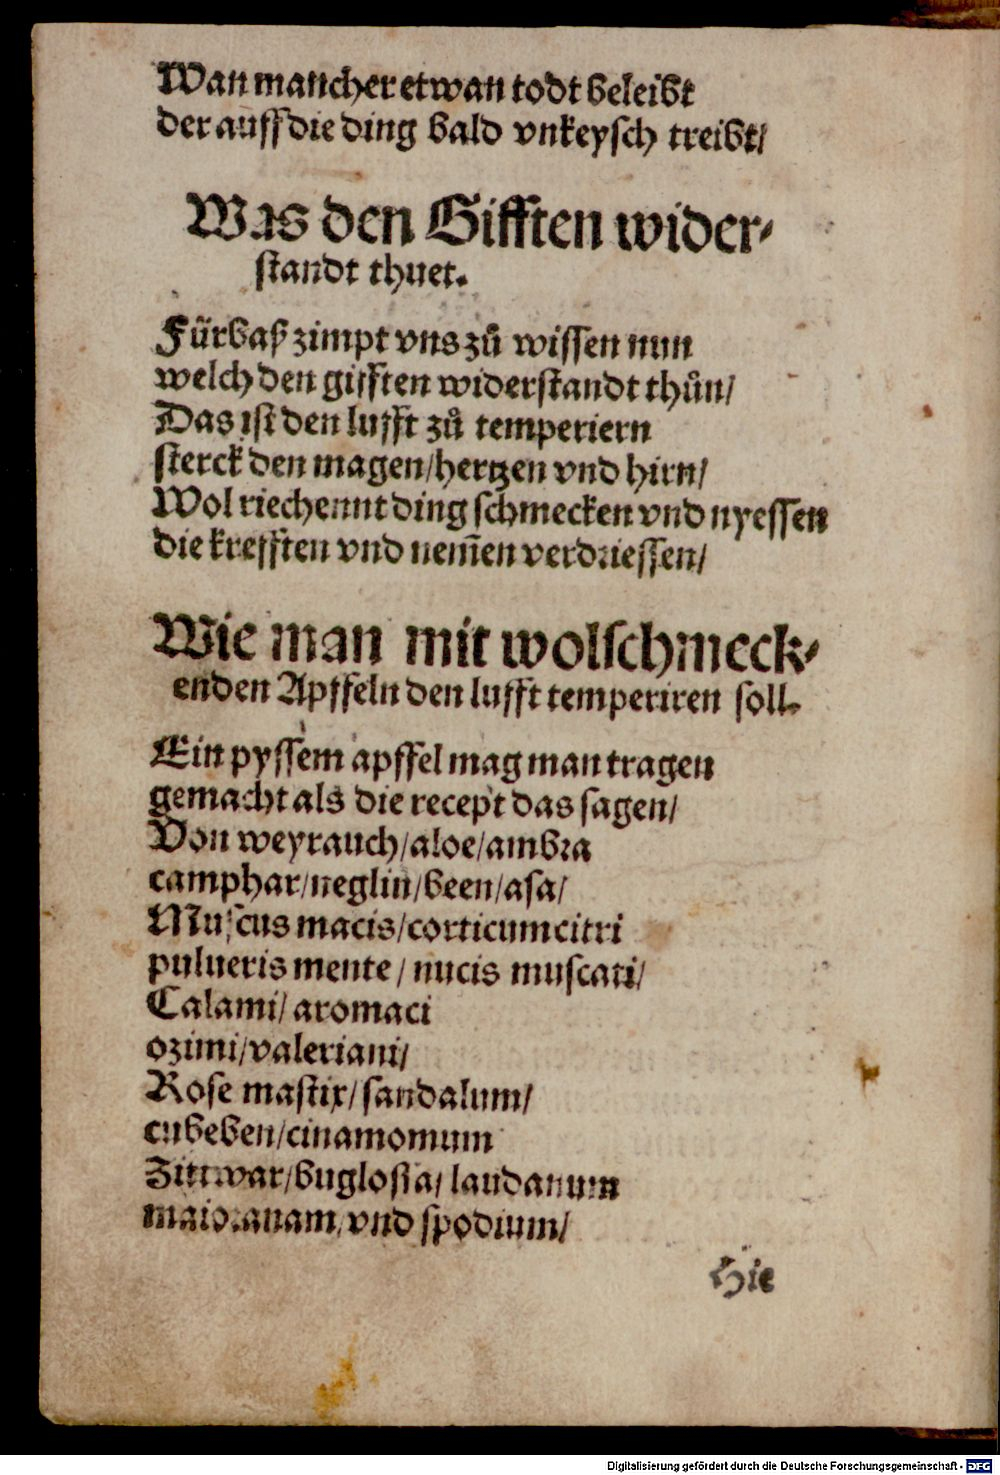 Wan mancher etwan todt beleibt
der auff die ding bald vnkeysch treibt/
Was den Gifften wider⸗
standt thuet.
Fürbaß zimpt vns zů wissen nun
welch den gifften widerstandt thůn/
Das ist den lufft zů temperiern
sterck den magen/hertzen vnd hirn/
Wol riechennt ding schmecken vnd nyessen
die krefften vnd nem̃en verdriessen/
Wie man mit wolschmeck⸗
enden Apffeln den lufft temperiren soll.
Ein pyssem apffel mag man tragen
gemacht als die recept das sagen/
Von weyrauch/aloe/ambra
camphar/neglin/been/asa/
Muscus macis/corticum citri
pulueris mente/nucis muscati/
Calami/aromaci
ozimi/valeriani/
Rose mastix/sandalum/
cubeben/cinamomum
Zittwar/buglossa/laudanum
maioranam/vnd spodium/
Hie
Digitalisierung gefördert durch die Deutsche Forschungsgemeinschaft - DFG